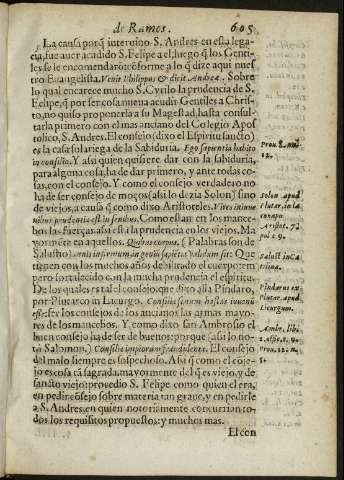 de Ramos. 605
La causa porq̃ interuino S. Andres en esta lega-
cia, fue auer acudido S. Felipe a el, luego q̃ los Genti-
les se le encomendarõ: cõforme a lo q̃ dize aqui nues
tro Euangelista, Venit Philippus & dicit Andreæ. Sobre
lo qual encarece mucho S. Cyrilo la prudencia de S.
Felipe, q̃ por ser cosa nueua acudir Gentiles a Chris-
to, no quiso proponerla a su Magestad, hasta consul-
tarla primero con el mas anciano del Colegio Apos
tolico, S. Andres. El consejo (dixo el Espiritu sancto)
es la casa solariega de la Sabiduria. Ego sapientia habito
in consilio. Y assi quien quisiere dar con la sabiduria,
para alguna cosa, ha de dar primero, y ante todas co-
sas, con el consejo. Y como el consejo verdadero no
ha de ser consejo de moços (assi lo dezia Solon) sino
de viejos, a causa q̃ como dixo Aristoteles. Vires in iuue
nibus prudentia est in senibus. Como estan en los mance-
bos las fuerças, assi està la prudencia en los viejos. Ma
yormẽte en aquellos. Quibus corpus. (Palabras son de
Salustio) annis infirmum, ingenij sapiẽtia validum sit: Que
tienen con los muchos años debilitado el cuerpo, em
pero fortalecido con la mucha prudencia el espiritu.
De los quales es tal el consejo, que dixo alla Pindaro,
por Plutarco in Licurgo. Consilia senum hastas iuuenũ
esse: ser los consejos de los ancianos las armas mayo-
res de los mancebos. Y como dixo san Ambrosio el
buen consejo ha de ser de buenos: porque (assi lo no-
tò Salomon.) Consilia impiorum fraudulenta. El consejo
del malo siempre es sospechoso. Assi que como el cõse-
jo es cosa tã sagrada, mayormente del q̃ es viejo, y de
sancto viejo: proveyò S. Felipe como quien el era,
en pedir cõsejo sobre materia tan graue, y en pedirle
a S. Andres, en quien notoriamente concurrian to-
dos los requisitos propuestos: y muchos mas.
El con
Prou. 8. nu.
12.
Solon apud
Plutar. in la
conap.
Aristot. 7.
pol. c. 9.
Salust. in Ca
tilina.
Pindarus ex
Plutar. apud
Licurgum.
Ambr. lib.
2. offic. c. 9.
Prou. 12. n.
5.